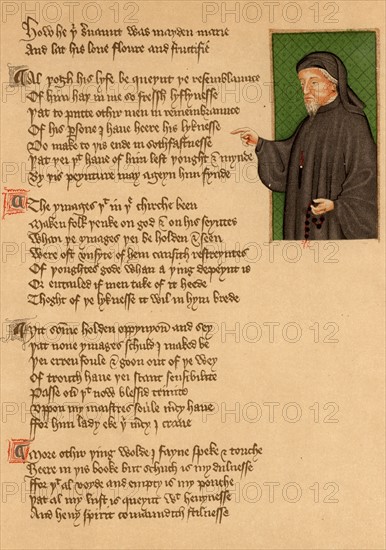 How he yͬ sͬuaunt was mayden marie
And lat his loue floure and fructifie
Al þogh his lyfe be queynt þe resemblaunce
Of him haþ in me so fressh lyflynesse
Þat to putte othir men in remembraunce
Of his ꝑsone I haue heere his lyknesse
Do make to þis ende in sothfastnesse
Þat þei þͭ haue of him lest þought & mynde
By þis peynture may ageyn him fynde
The ymages þͭ in þͤ chirche been
Maken folk þenke on god & on his seyntes
Whan þe ymages þei be holden & seen
Were oft vnsyte of hem causith restreyntes
Of þoughtes gode whan a þing depeynt is
Or entailed if men take of it heede
Thoght of þe lyknesse it wil in hym brede
Yit somme holden oppynyon and sey
Þat none ymages schuld I maked be
Þei erren foule & goon out of þe wey
Of trouth haue þei scant sensibilite
Passe ouͬ þͭ now blessid trinite
Vppon my maistres soule mͬcy haue
ffor him lady eke þͥ mͬcy I craue
More othir þing wolde I fayne speke & touche
Heere in þis booke but schuch is my dulnesse
ffor þͭ al voyde and empty is my pouche
Þat al my lust is queynt wͭ heuynesse
And heuy spirit comaundith stilnesse
PHOTO 12